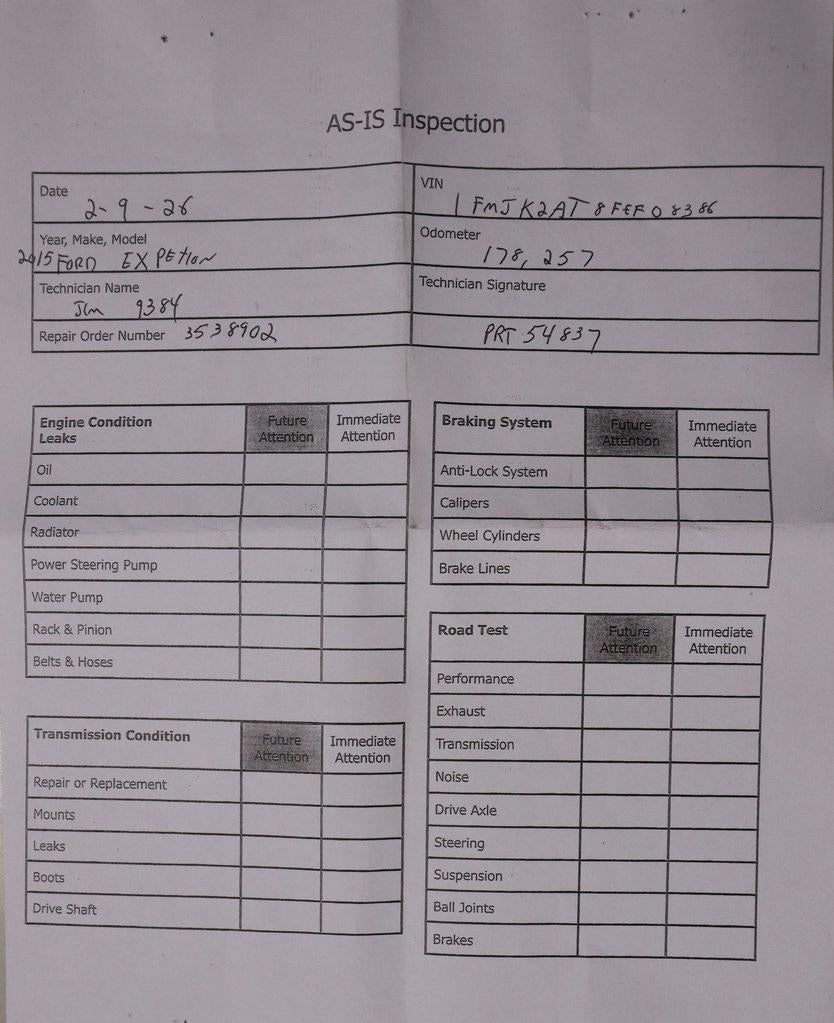 AS-IS Inspection
Date
2-9-26
VIN
1FMJK2AT8FEF08386
Year, Make, Model
2015 FORD EXPETION
Odometer
178,257
Technician Name
Jim 9384
Technician Signature
Repair Order Number 3538902
PRT 54837
Engine Condition Leaks Future Attention Immediate Attention
Oil
Coolant
Radiator
Power Steering Pump
Water Pump
Rack & Pinion
Belts & Hoses
Transmission Condition Future Attention Immediate Attention
Repair or Replacement
Mounts
Leaks
Boots
Drive Shaft
Braking System Future Attention Immediate Attention
Anti-Lock System
Calipers
Wheel Cylinders
Brake Lines
Road Test Future Attention Immediate Attention
Performance
Exhaust
Transmission
Noise
Drive Axle
Steering
Suspension
Ball Joints
Brakes